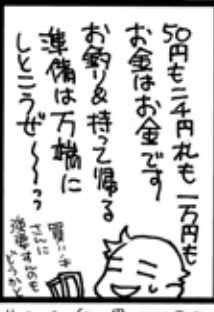 50円も二千円札も一万円も
お金はお金です
お釣り&持って帰る
準備は万端に
しとこうぜ〜〜っっ
買い
さんに
強要すんのも
どうかと